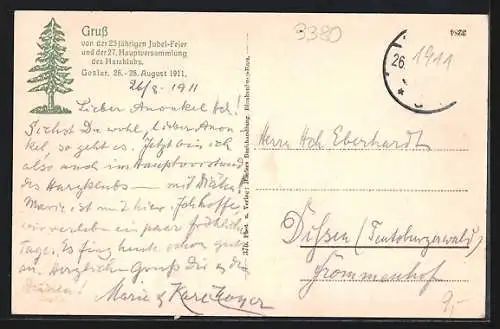 Gruß
von der 25jährigen Jubel-Feier
und der 27. Hauptversammlung
des Harzklubs.
Goslar, 26.-28. August 1911.
26/8 1911
Lieber
Siehst Du wohl, lieber
kel, so geht es. Jetzt bin ich
also auch im Hauptvorstand
des Harzklubs — mit
Marie ist mit hier. Ich hoffe
wir verleben ein paar fröhliche
Tage. Es fing heute schon gut
an. Herzlichen Gruß Dir
Marie & Karl
3380
26. 1911
Herrn Hch Eberhardt
Dissen (Teutoburgerwald)
Frommenhof